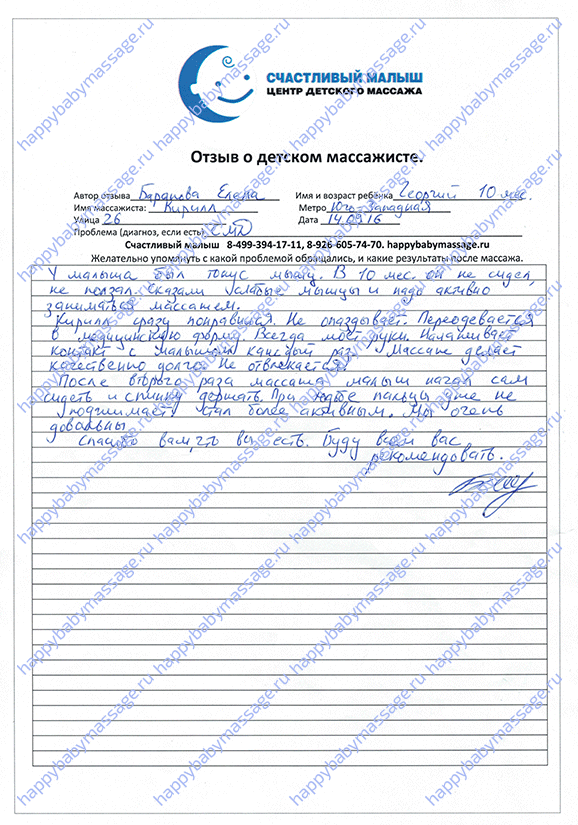 СЧАСТЛИВЫЙ МАЛЫШ
ЦЕНТР ДЕТСКОГО МАССАЖА
Отзыв о детском массажисте.
Автор отзыва Баранова Елена Имя и возраст ребёнка Георгий 10 мес.
Имя массажиста: Кирилл Метро Юго-Западная
Улица 26 Дата 14.09.16
Проблема (диагноз, если есть) СМД
Счастливый малыш 8-499-394-17-11, 8-926-605-74-70. happybabymassage.ru
Желательно упомянуть с какой проблемой обращались, и какие результаты после массажа.
У малыша был тонус мышц. В 10 мес. он не сидел
не ползал. Сказали слабые мышцы и надо активно
заниматься массажем.
Кирилл сразу понравился. Не опаздывает. Переодевается
в медицинскую форму. Всегда моет руки. Налаживает
контакт с малышом каждый раз. Массаж делает
качественно долго. Не отвлекается.
После второго раза массажа малыш начал сам
сидеть и спинку держать. При ходьбе пальцы уже не
поджимает стал более активным. Мы очень
довольны
Спасибо вам, что вы есть. Буду всем вас
рекомендовать.
happybabymassage.ru